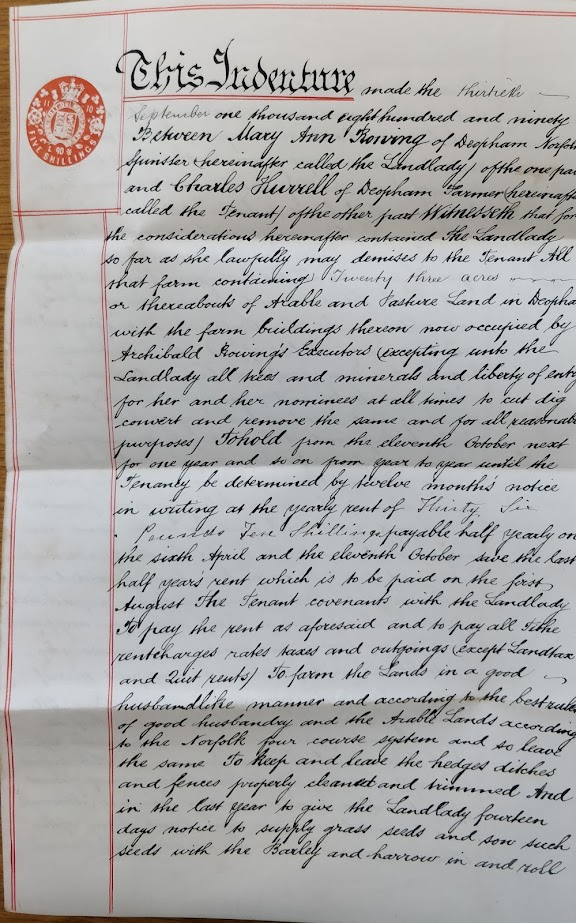 11 10
90
FIVE SHILLINGS
This Indenture made the thirtieth
September one thousand eight hundred and ninety
Between Mary Ann Rowing of Deopham Norfolk
Spinster (hereinafter called the Landlady) of the one pa
and Charles Hurrell of Deopham Farmer (hereinafte
called the Tenant) of the other part Witnesseth that for
the considerations hereinafter contained The Landlady
so far as she lawfully may demises to the Tenant All
that farm containing Twenty three acres
or thereabouts of Arable and Pasture Land in Deopha
with the farm buildings thereon now occupied by
Archibald Rowing's Executors (excepting unto the
Landlady all trees and minerals and liberty of entry
for her and her nominees at all times to cut dig
convert and remove the same and for all reasonab
purposes) To hold from the eleventh October next
for one year and so on from year to year until the
Tenancy be determined by twelve month's notice
in writing at the yearly rent of Thirty Six
Pounds Ten Shillings payable half yearly on
the sixth April and the eleventh October save the last
half years rent which is to be paid on the first
August The Tenant covenants with the Landlady
To pay the rent as aforesaid and to pay all Tithe
rentcharges rates taxes and outgoings (except Landtax
and Quit rents) To farm the Lands in a good
husbandlike manner and according to the best rules
of good husbandry and the Arable Lands according
to the Norfolk four course system and so leave
the same To keep and leave the hedges ditches
and fences properly cleaned and trimmed And
in the last year to give the Landlady fourteen
days notice to supply grass seeds and sow such
seeds with the Barley and harrow in and roll